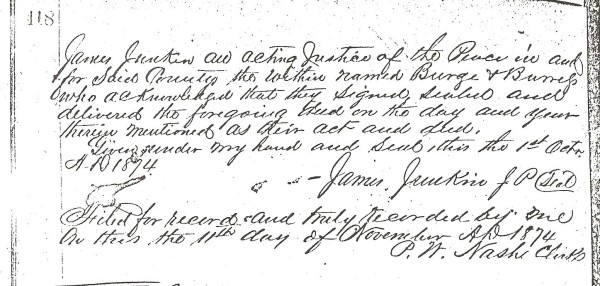 118
James Junkin an acting Justice of the Peace in and
for said County the within named Burge & Burress
who acknowledged that they signed, sealed and
delivered the foregoing deed on the day and year
therein mentioned as their act and deed.
Given under my hand and seal, this the 1st Octr.
A.D 1874
James, Junkin J P (Seal)
Filed for record and truly recorded by me
on this the 11th day of November AD 1874
P. W. Nashe Clerk